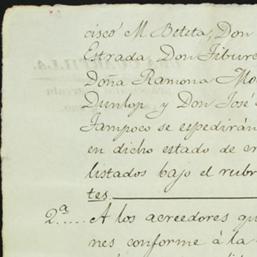 cisco M. Beteta, Don
Estrada Don Tibur
Doña Ramona Mo
Dunlop y Don José
Tampoco se espedirán
en dicho estado de cr
listados bajo el rubr
tes.
2.ª.... A los acreedores qu
nes conforme á la